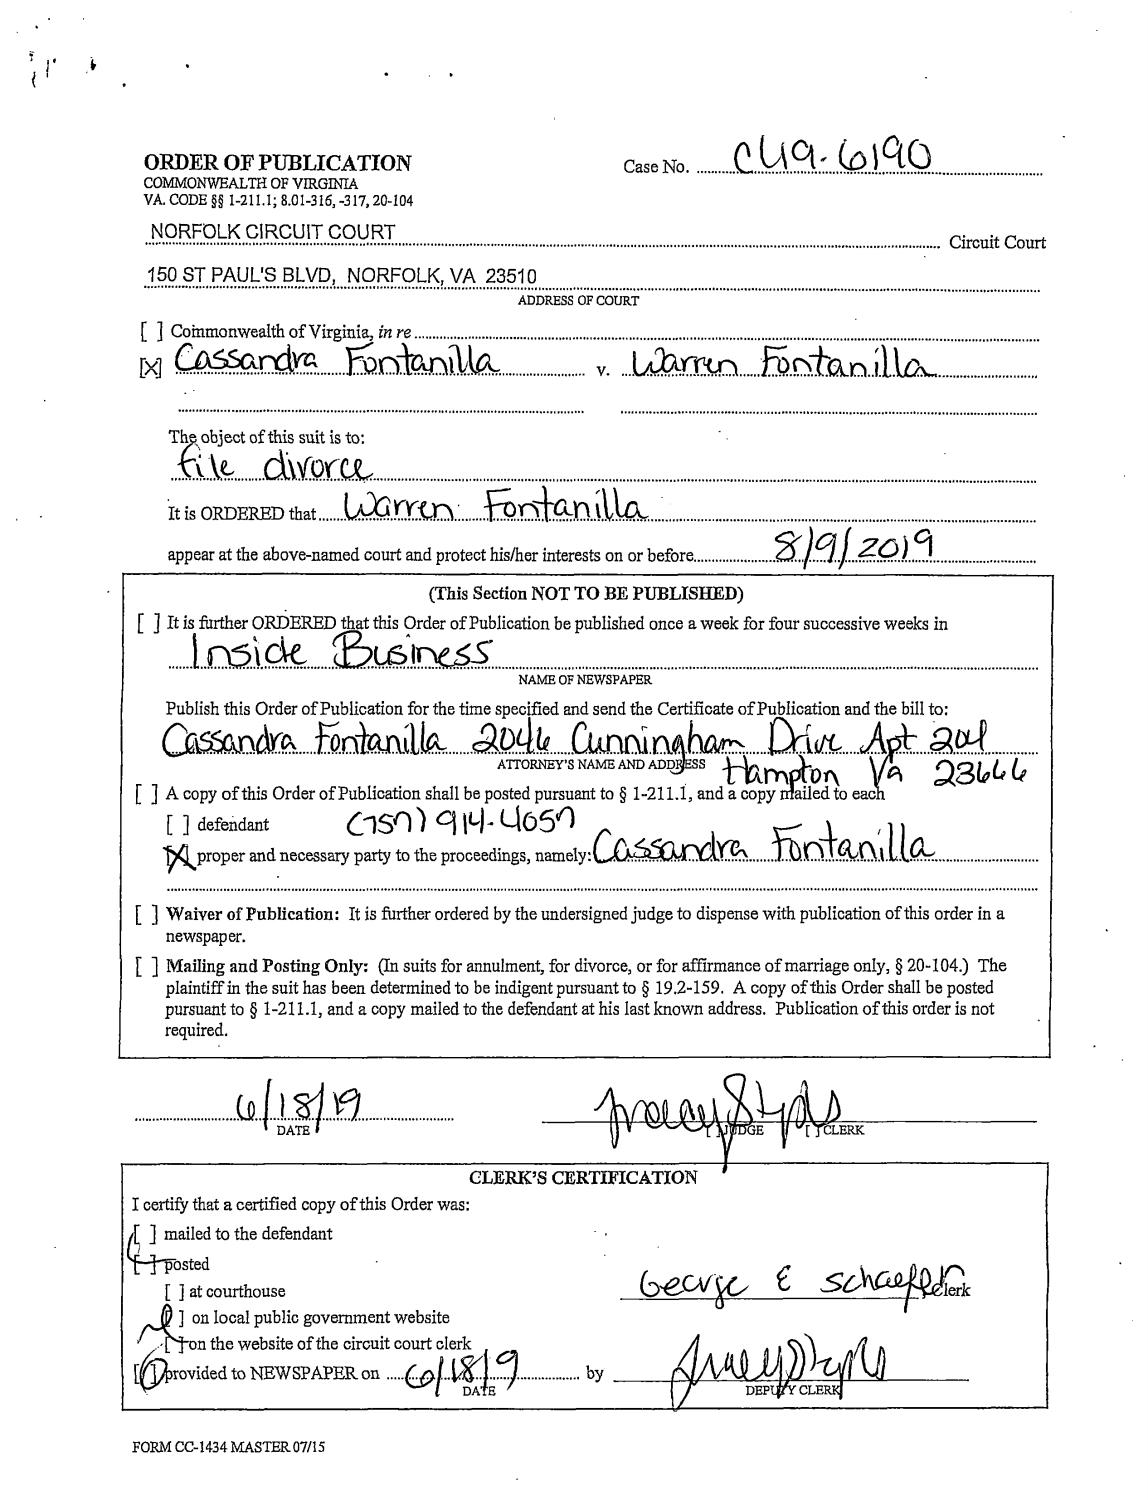 ORDER OF PUBLICATION
COMMONWEALTH OF VIRGINIA
VA. CODE §§ 1-211.1; 8.01-316, -317, 20-104
Case No. CL19-6190
NORFOLK CIRCUIT COURT Circuit Court
150 ST PAUL'S BLVD, NORFOLK, VA 23510
ADDRESS OF COURT
[ ] Commonwealth of Virginia, in re
[X] Cassandra Fontanilla v. Warren Fontanilla
The object of this suit is to:
file divorce
It is ORDERED that Warren Fontanilla
appear at the above-named court and protect his/her interests on or before 8/9/2019
(This Section NOT TO BE PUBLISHED)
[ ] It is further ORDERED that this Order of Publication be published once a week for four successive weeks in
Inside Business
NAME OF NEWSPAPER
Publish this Order of Publication for the time specified and send the Certificate of Publication and the bill to:
Cassandra Fontanilla 2046 Cunningham Drive Apt 201
ATTORNEY'S NAME AND ADDRESS Hampton Va 23666
[ ] A copy of this Order of Publication shall be posted pursuant to § 1-211.1, and a copy mailed to each
[ ] defendant (757) 914-4057
[X] proper and necessary party to the proceedings, namely: Cassandra Fontanilla
[ ] Waiver of Publication: It is further ordered by the undersigned judge to dispense with publication of this order in a
newspaper.
[ ] Mailing and Posting Only: (In suits for annulment, for divorce, or for affirmance of marriage only, § 20-104.) The
plaintiff in the suit has been determined to be indigent pursuant to § 19.2-159. A copy of this Order shall be posted
pursuant to § 1-211.1, and a copy mailed to the defendant at his last known address. Publication of this order is not
required.
6/18/19
DATE [ ] JUDGE [ ] CLERK
CLERK'S CERTIFICATION
I certify that a certified copy of this Order was:
[ ] mailed to the defendant
[ ] posted
[ ] at courthouse
George E Schaefer Clerk
[ ] on local public government website
[ ] on the website of the circuit court clerk
[ ] provided to NEWSPAPER on 6/18/19 by
DATE DEPUTY CLERK
FORM CC-1434 MASTER 07/15